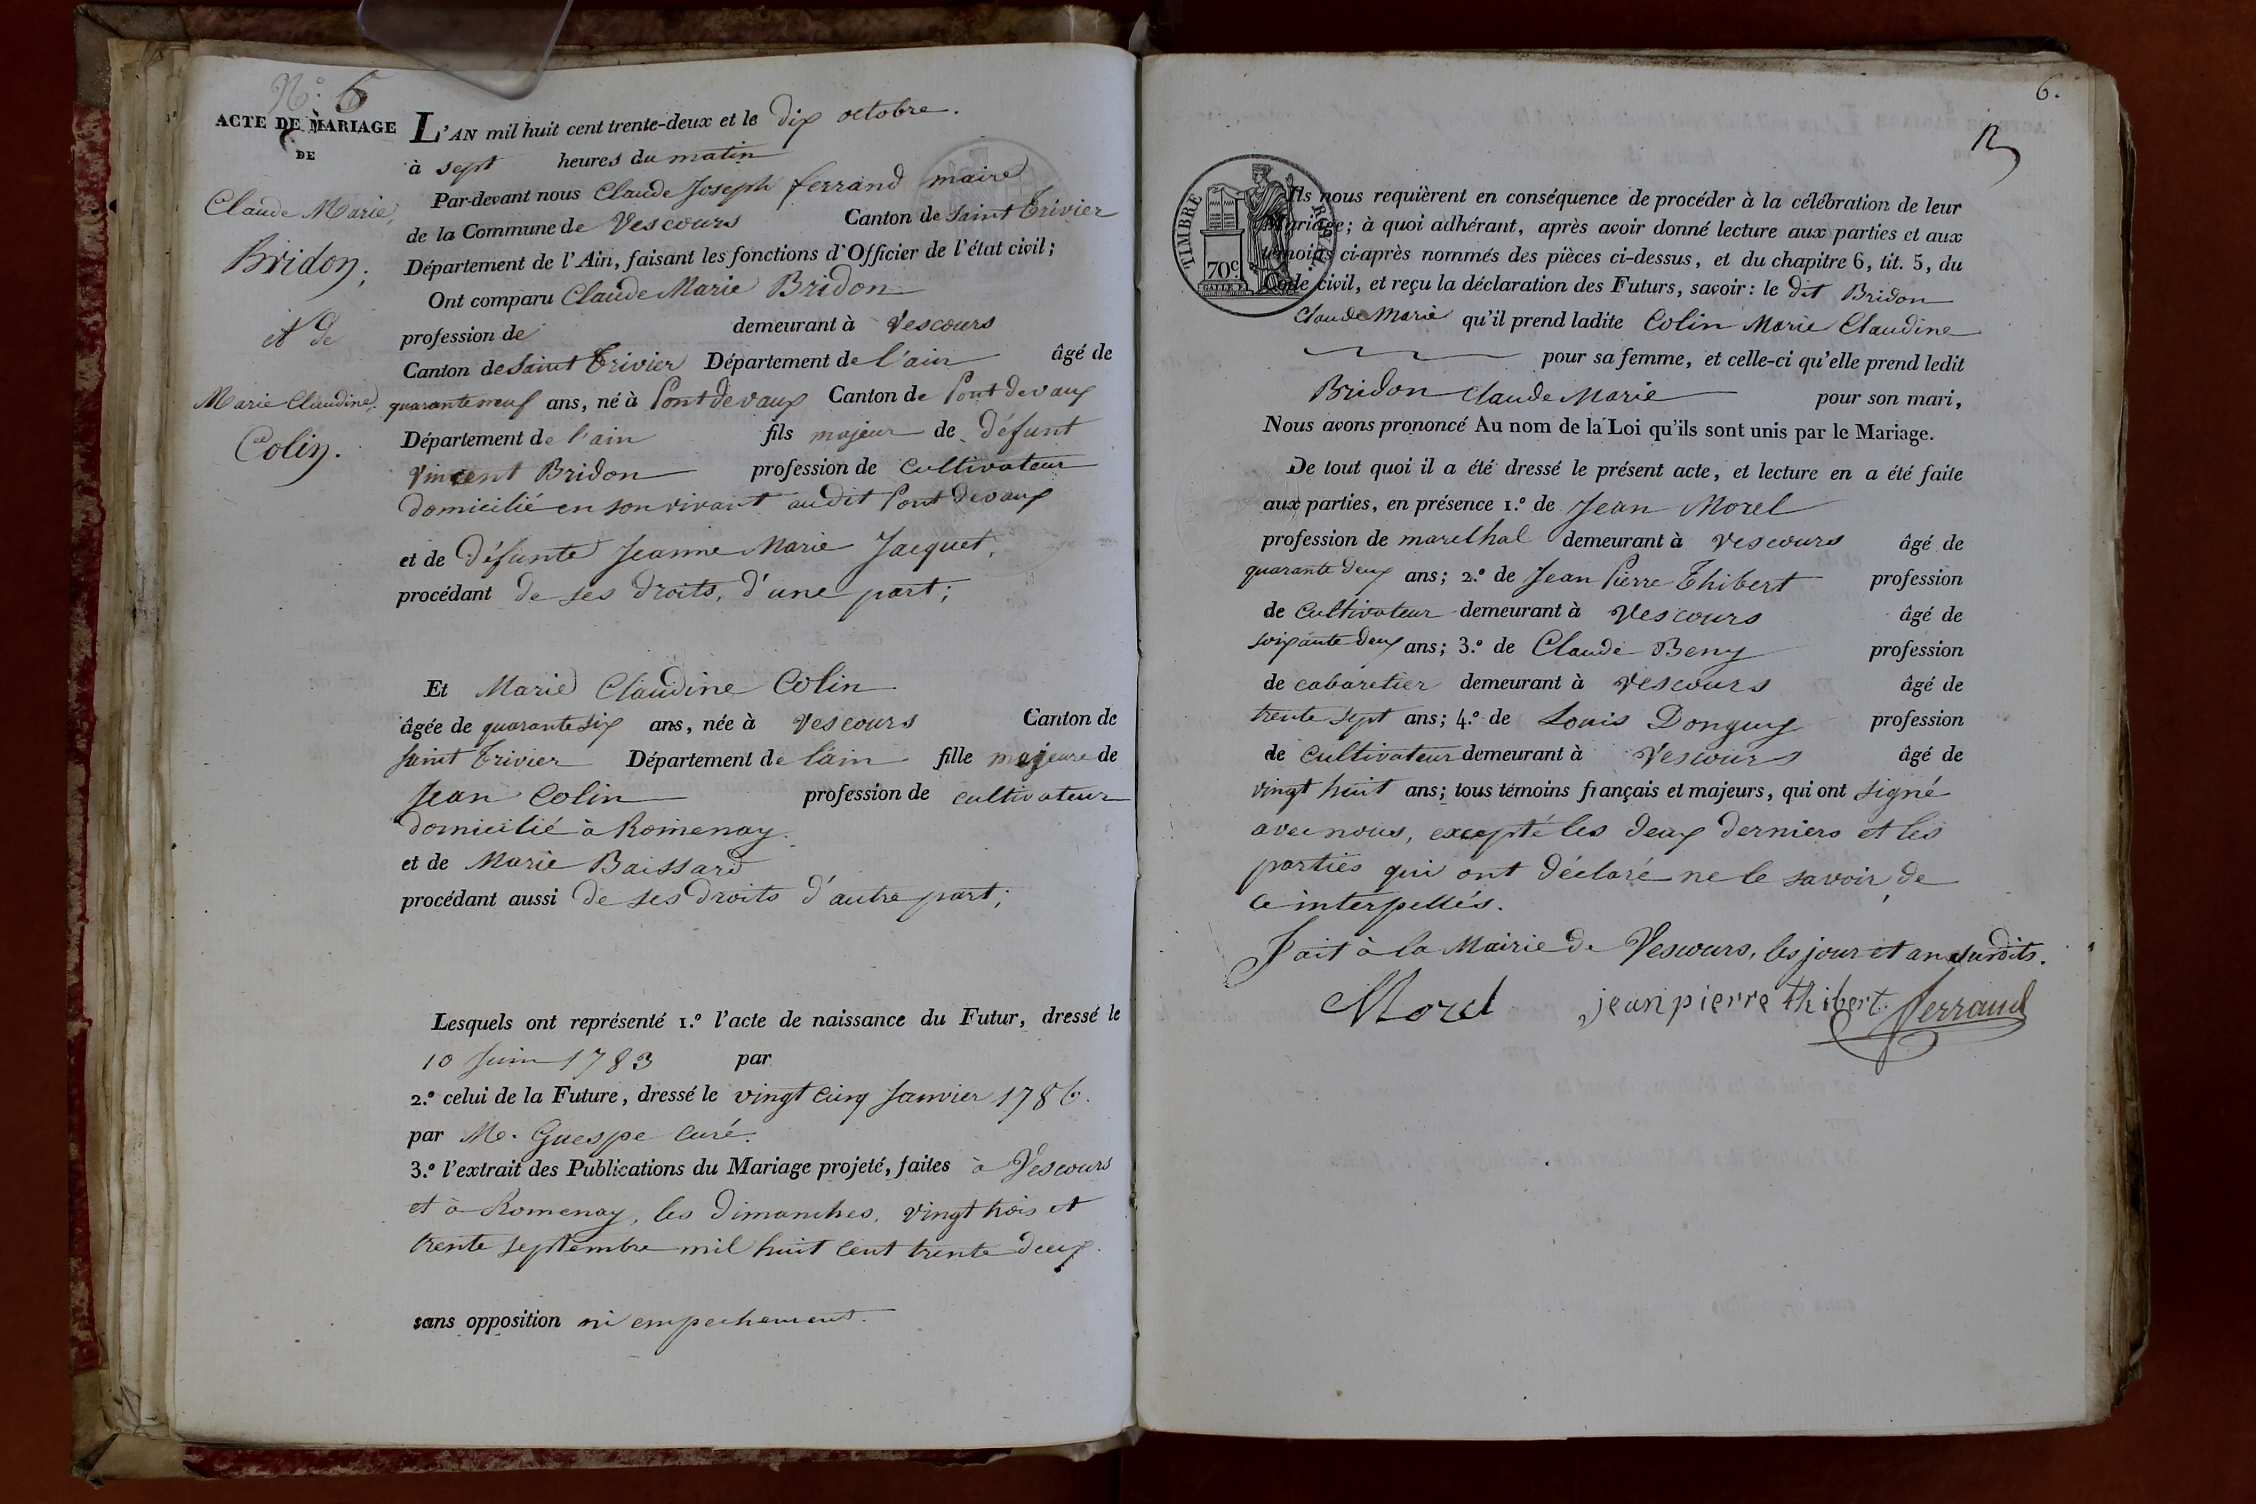 N.° 6
ACTE DE MARIAGE
DE
Claude Marie
Bridon,
et de
Marie Claudine
Colin.
L'AN mil huit cent trente-deux et le dix octobre.
à sept heures du matin
Par-devant nous Claude Joseph ferrand maire
de la Commune de Vescours Canton de Saint Trivier
Département de l'Ain, faisant les fonctions d'Officier de l'état civil;
Ont comparu Claude Marie Bridon
profession de demeurant à Vescours
Canton de Saint Trivier Département de l'ain âgé de
quarante neuf ans, né à Pontdevaux Canton de Pontdevaux
Département de l'ain fils majeur de défunt
Vincent Bridon profession de cultivateur
domicilié en son vivant audit Pontdevaux
et de défunte Jeanne Marie Jacquet,
procédant de ses droits, d'une part;
Et Marie Claudine Colin
âgée de quarante six ans, née à Vescours Canton de
Saint Trivier Département de l'ain fille majeure de
Jean Colin profession de cultivateur
domicilié à Romenay.
et de Marie Baissard
procédant aussi de ses droits d'autre part;
Lesquels ont représenté 1.° l'acte de naissance du Futur, dressé le
10 Juin 1783 par
2.° celui de la Future, dressé le vingt cinq Janvier 1786.
par Me. Guespe curé.
3.° l'extrait des Publications du Mariage projeté, faites à Vescours
et à Romenay, les dimanches, vingt trois et
trente septembre mil huit cent trente deux.
sans opposition ni empechement.
6.
TIMBRE ROYAL
70c
Ils nous requièrent en conséquence de procéder à la célébration de leur
Mariage; à quoi adhérant, après avoir donné lecture aux parties et aux
témoins ci-après nommés des pièces ci-dessus, et du chapitre 6, tit. 5, du
Code civil, et reçu la déclaration des Futurs, savoir: le dit Bridon
Claude Marie qu'il prend ladite Colin Marie Claudine
pour sa femme, et celle-ci qu'elle prend ledit
Bridon Claude Marie pour son mari,
Nous avons prononcé Au nom de la Loi qu'ils sont unis par le Mariage.
De tout quoi il a été dressé le présent acte, et lecture en a été faite
aux parties, en présence 1.° de Jean Morel
profession de marethal demeurant à Vescours âgé de
quarante deux ans; 2.° de Jean Pierre Thibert profession
de cultivateur demeurant à Vescours âgé de
soixante deux ans; 3.° de Claude Beny profession
de cabaretier demeurant à Vescours âgé de
trente sept ans; 4.° de Louis Donguy profession
de cultivateur demeurant à Vescours âgé de
vingt huit ans; tous témoins français et majeurs, qui ont signé
avec nous, excepté les deux derniers et les
parties qui ont déclaré ne le savoir, de
ce interpellés.
Fait à la Mairie de Vescours, les jour et an susdits.
Morel jeanpierre thibert. ferrand